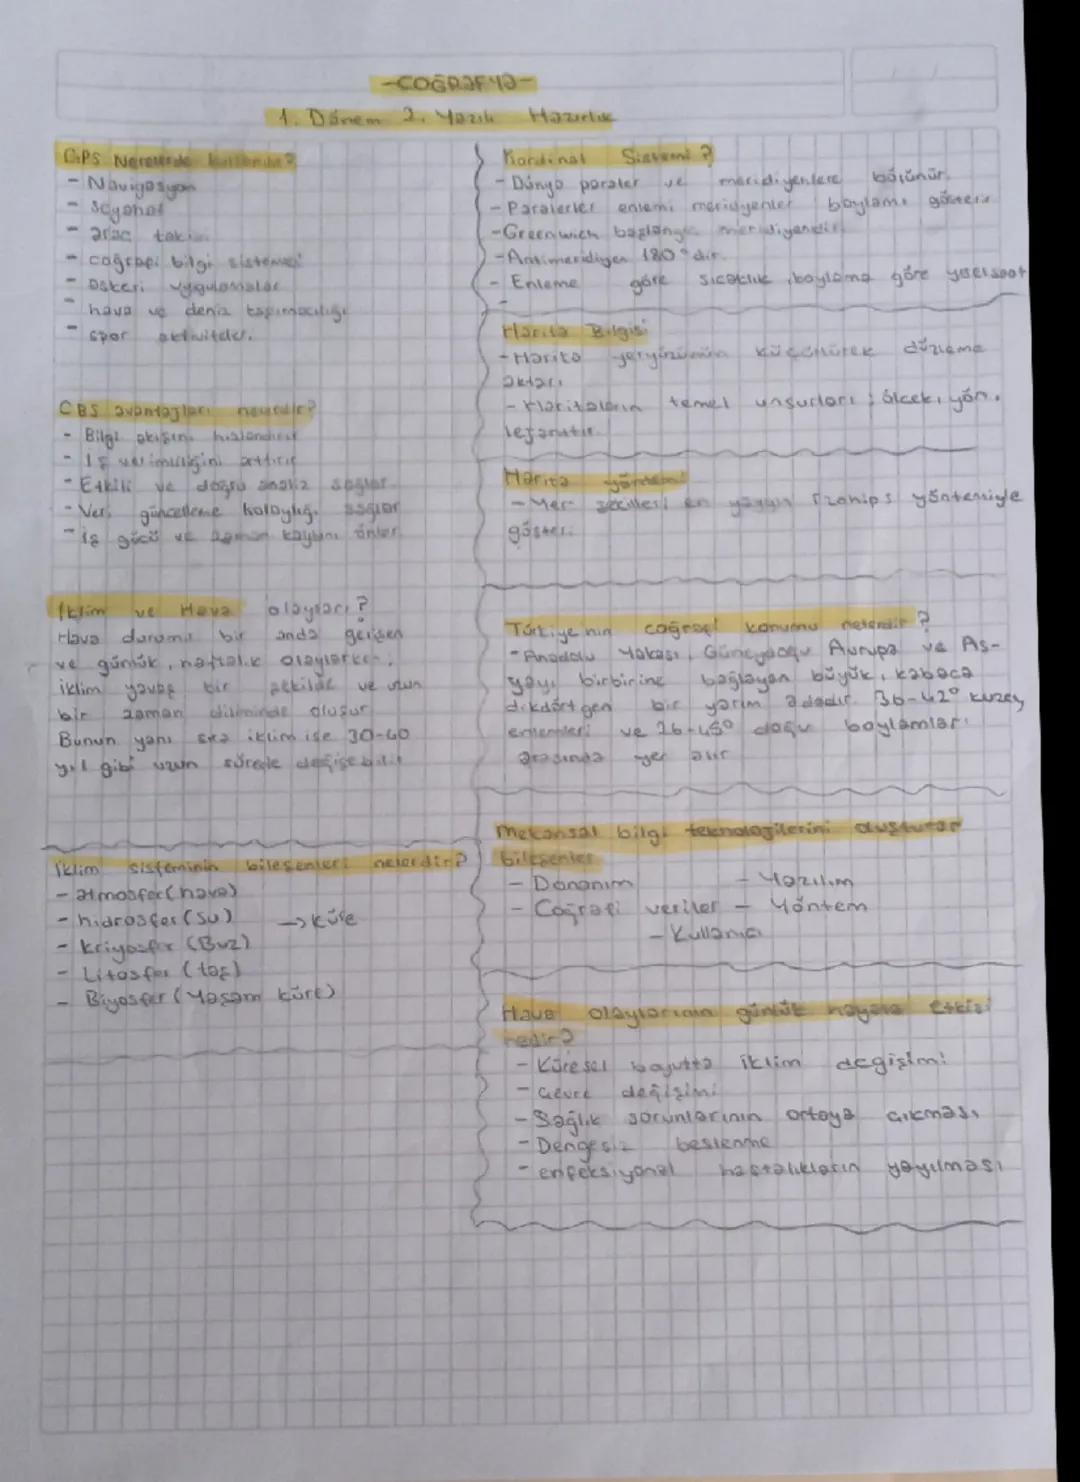 -COĞRAFYA-
1. Dönem 2. Yazılı Hazırlık
GPS Nerelerde kullanılır?
- Navigasyon
- Seyahat
- araç takibi
- coğrafi bilgi sistemi
- Askeri uygulamalar
- hava ve deniz taşımacılığı
- spor aktiviteler.
CBS avantajları nelerdir?
- Bilgi akışını hızlandırır
- İş verimliliğini arttırır
- Etkili ve doğru analiz sağlar.
- Veri güncelleme kolaylığı sağlar
- İş gücü ve zaman kaybını önler.
İklim ve Hava olayları?
Hava durumu bir anda gelişen
ve günlük, haftalık olaylarken;
iklim yavaş bir şekilde ve uzun
bir zaman diliminde oluşur
Bunun yanı sıra iklim ise 30-40
yıl gibi uzun süreçle değişebilir
İklim sisteminin bileşenleri nelerdir?
- atmosfer (hava)
- hidrosfer (su) → küre
- kriyosfer (Buz)
- Litosfer (taş)
- Biyosfer (Yaşam küre)
Kordinat Sistemi?
- Dünya paraler ve meridiyenlere bölünür.
- Paralerler enlemi meridyenler boylamı gösterir
- Greenwich başlangıç meridiyenidir
- Antimeridiyen 180° dir.
- Enleme göre sıcaklık, boylama göre yerel saat
Harita Bilgisi
- Harita yeryüzünün küçültürek düzleme
aktarı
- Haritaların temel unsurları; ölçek, yön,
lejanttır.
Harita yöntemi
- Yer şekilleri en yaygın İzohips yöntemiyle
gösteri.
Türkiye'nin coğrafi konumu nelerdir?
- Anadolu Yakası, Güneydoğu Avrupa ve As-
yayı birbirine bağlayan büyük, kabaca
dikdörtgen bir yarım adadır. 36-42° kuzey
enlemleri ve 26-45° doğu boylamları
arasında yer alır
Mekansal bilgi teknolojilerini oluşturan
bileşenler
- Donanım - Yazılım
- Coğrafi veriler - Yöntem
- Kullanıcı
Hava olaylarının günlük hayata etkisi
nedir?
- Küresel boyutta iklim değişimi
- Çevre değişimi
- Sağlık sorunlarının ortaya çıkması
- Dengesiz beslenme
- enfeksiyonel hastalıkların yayılması